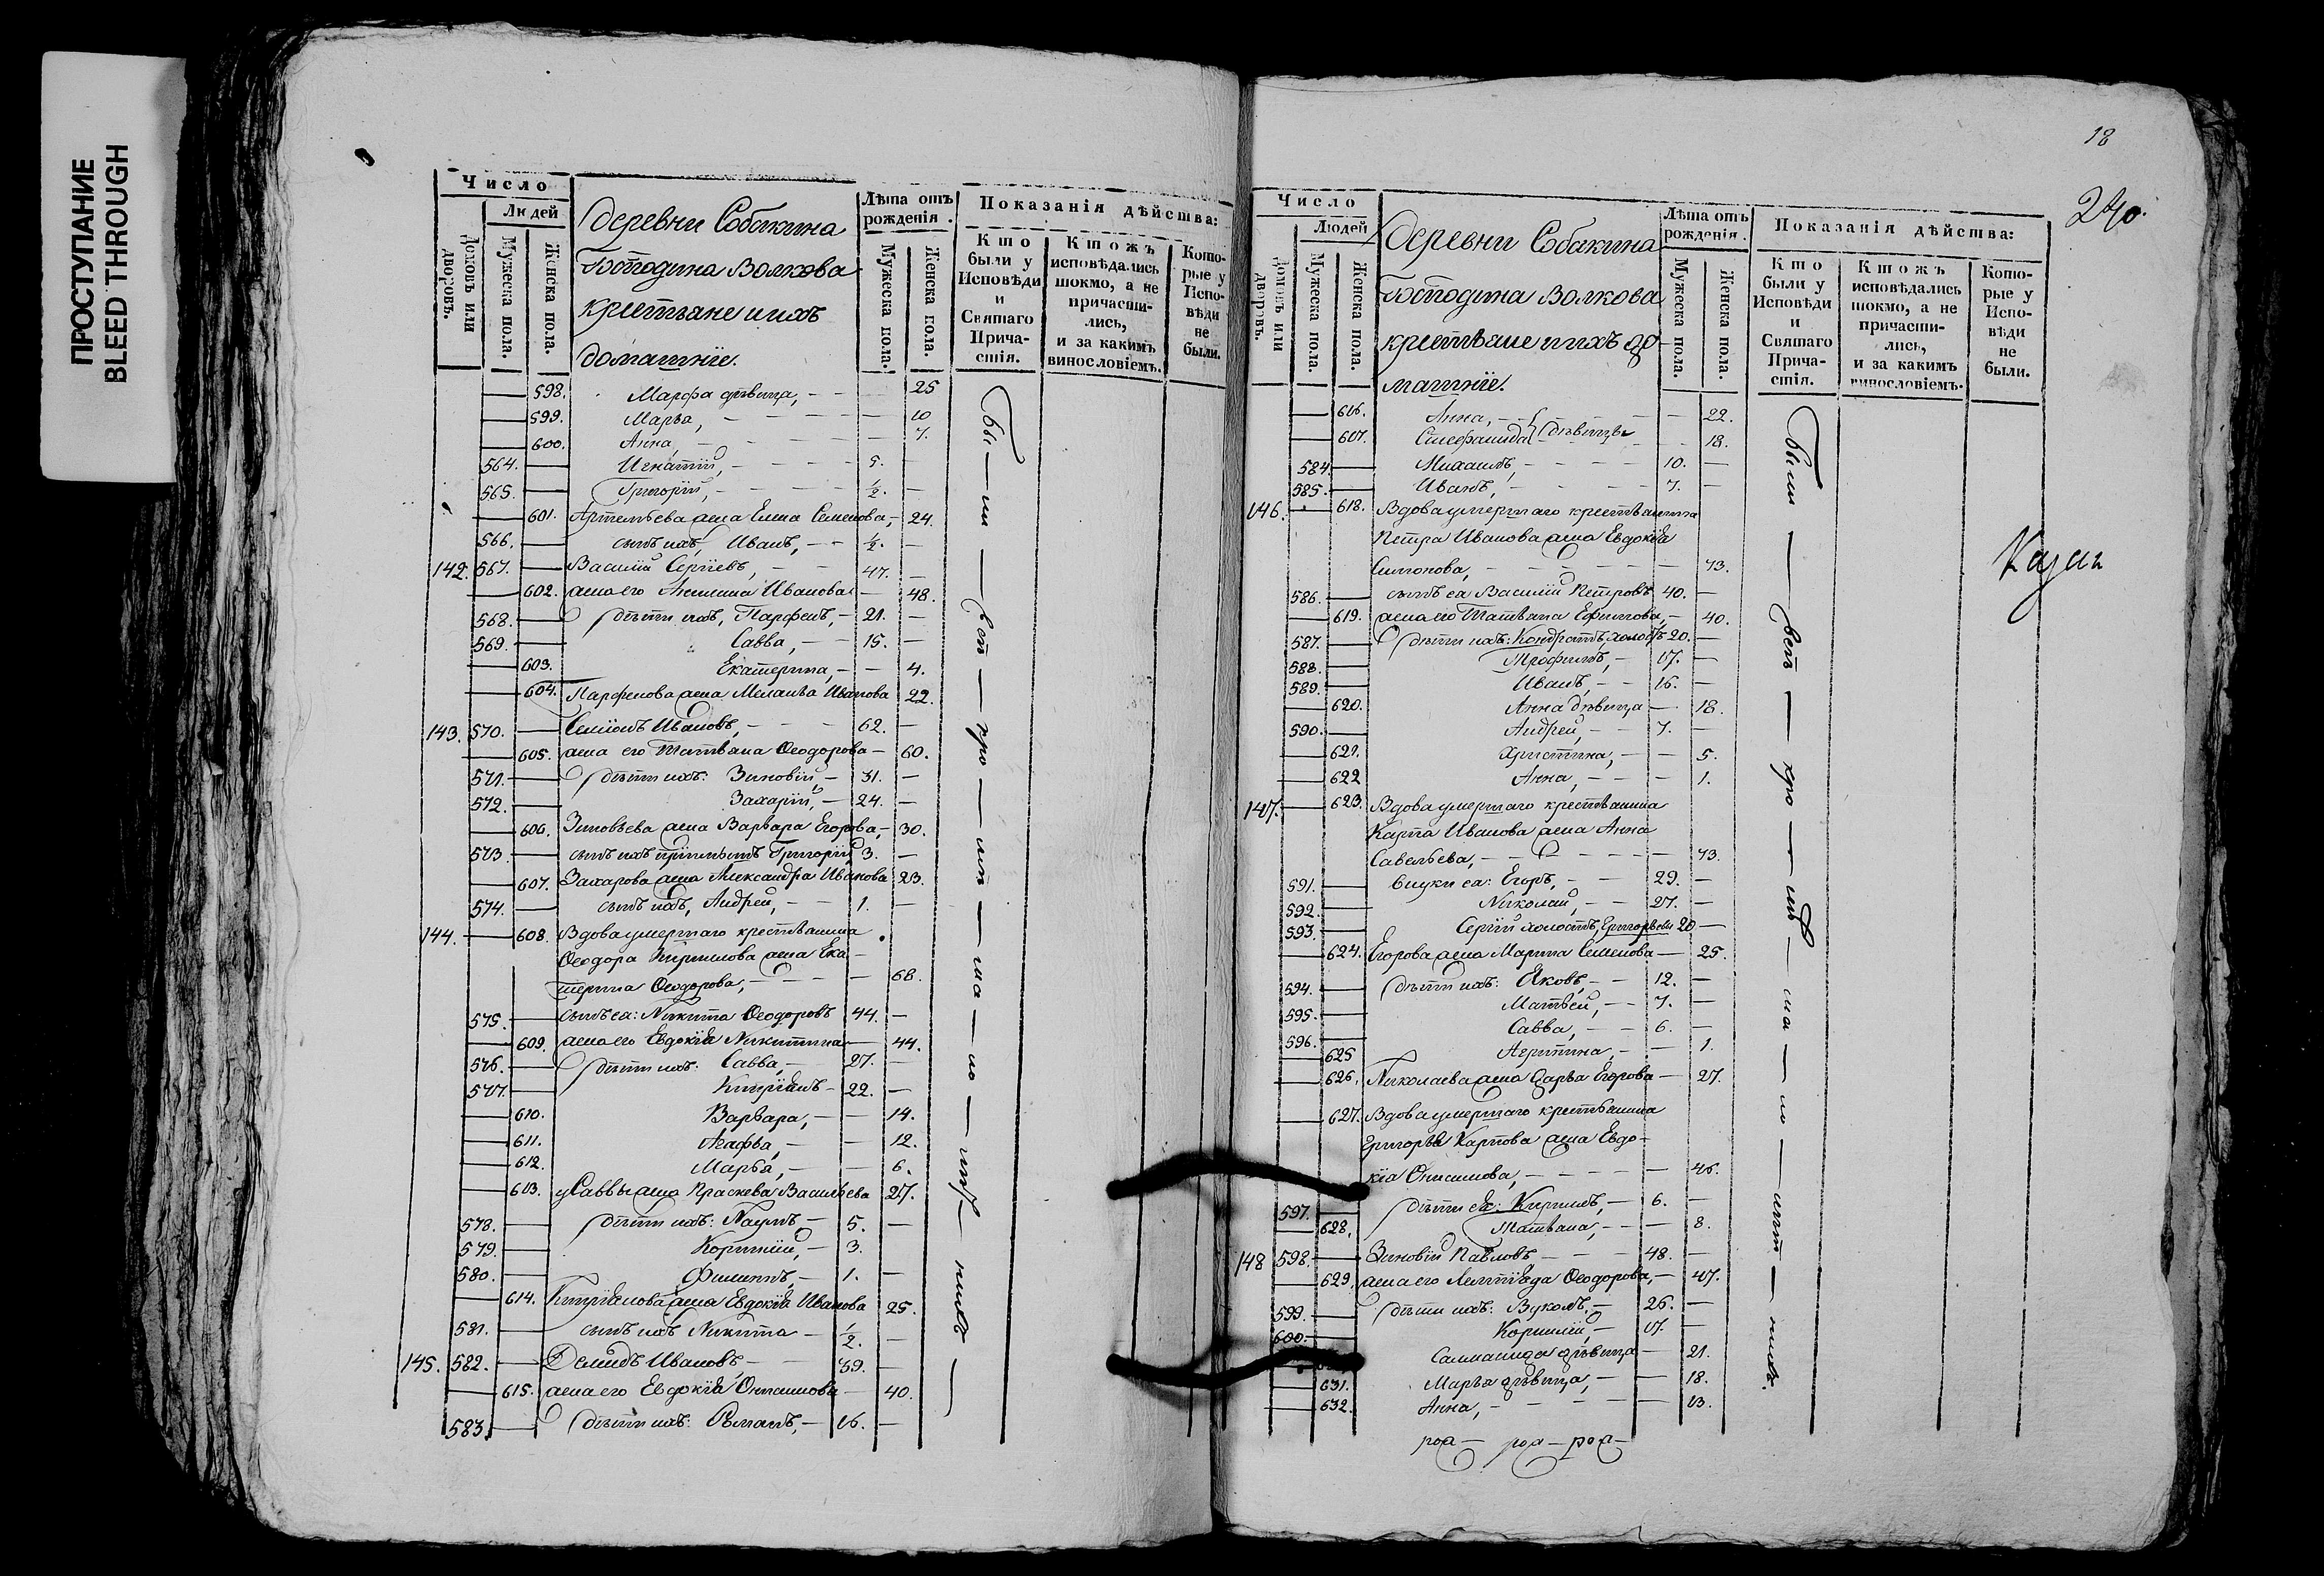 ПРОСТУПАНИЕ
BLEED THROUGH
Число
Людей
Домовъ или дворовъ.
Мужеска пола.
Женска пола.
деревни Собакина
Господина Волкова
крестьяне и ихъ
домашніе.
Лѣта отъ рожденія.
Мужеска пола.
Женска пола.
Показанія дѣйства:
Кто были у Исповѣди и Святаго Причастія.
Ктожъ исповѣдались токмо, а не причастились, и за какимъ винословіемъ.
Которые у Исповѣди не были.
598. Марфа дѣвица, 25
599. Марья, 10
600. Анна, 7.
564. Игнатій, 5.
565. Григорій, 1/2.
601. жена Елена Семенова, 24.
566. сынъ ихъ, Иванъ, 1/2.
142. 567. Василій Сергіевъ, 47.
602. жена его Иванова 48.
568. дѣти ихъ, Парфенъ, 21.
569. Савва, 15.
603. Екатерина, 4.
604. Парфенова жена Меланья Иванова 22.
143. 570. Семіонъ Ивановъ, 62.
605. жена его Татьяна Ѳеодорова 60.
571. дѣти ихъ: Зиновій, 31.
572. Захарій, 24.
606. Зиновьева жена Варвара Егорова, 30.
573. сынъ ихъ Григорій, 3.
607. Захарова жена Александра Иванова 23.
574. сынъ ихъ, Андрей, 1.
144. 608. Вдова умершаго крестьянина
Ѳеодора Кирилова жена Ека-
терина Ѳеодорова, 68.
575. сынъ ея: Никита Ѳеодоровъ 44.
609. жена его Евдокія Никитина 44.
576. дѣти ихъ: Савва, 27.
577. 22.
610. Варвара, 14.
611. Агафья, 12.
612. Марья, 6.
613. у Саввы жена Праскева Васильева 27.
578. дѣти ихъ: Наумъ, 5.
579. Корнилій, 3.
580. Филиппъ, 1.
614. жена Евдокія Иванова 25.
581. сынъ ихъ Никита 1/2.
145. 582. Демидъ Ивановъ, 39.
615. жена его Евдокія Онисимова 40.
583. дѣти ихъ: Романъ, 16.
Бы — ли — вси — кро — лѣ — ма — ло — лѣт — нихъ
18
240.
Число
Людей
Домовъ или дворовъ.
Мужеска пола.
Женска пола.
деревни Собакина
Господина Волкова
крестьяне и ихъ до-
машніе.
Лѣта отъ рожденія.
Мужеска пола.
Женска пола.
Показанія дѣйства:
Кто были у Исповѣди и Святаго Причастія.
Ктожъ исповѣдались токмо, а не причастились, и за какимъ винословіемъ.
Которые у Исповѣди не были.
616. Анна, 22.
дѣвицы
617. Степанида 18.
584. Михаилъ, 10.
585. Иванъ, 7.
146. 618. Вдова умершаго крестьянина
Петра Иванова жена Евдокія
Симонова, 73.
586. сынъ ея Василій Петровъ 40.
619. жена его Татьяна Ефимова, 40.
587. дѣти ихъ: Кондратъ холостъ 20.
588. Трофимъ, 17.
589. Иванъ, 16.
620. Анна дѣвица 18.
590. Андрей, 7.
621. Христина, 5.
622 Анна, 1.
147. 623. Вдова умершаго крестьянина
Карпа Иванова жена Анна
Савельева, 73.
591. внуки ея: Егоръ, 29.
592. Николай, 27.
593. Сергій холостъ, Григорьевы 20
624. Егорова жена Марина Семенова 25.
594. дѣти ихъ: Яковъ, 12.
595. Матвей, 7.
596. Савва, 6.
625 Агрипина, 1.
626. Николаева жена Дарья Егорова 27.
627. Вдова умершаго крестьянина
Григорья Карпова жена Евдо-
кія Онисимова, 46.
597. дѣти ея: Кирилъ, 6.
628. Татьяна, 8.
148 598. Зиновій Павловъ 48.
629. жена его Ѳеодорова, 47.
599. дѣти ихъ: Вуколъ, 26.
600. Корнилій, 17.
дѣвица 21.
631. Марья дѣвица, 18.
632. Анна, 13.
Были — вси — кро — мѣ — ма — ло — лѣт — нихъ.